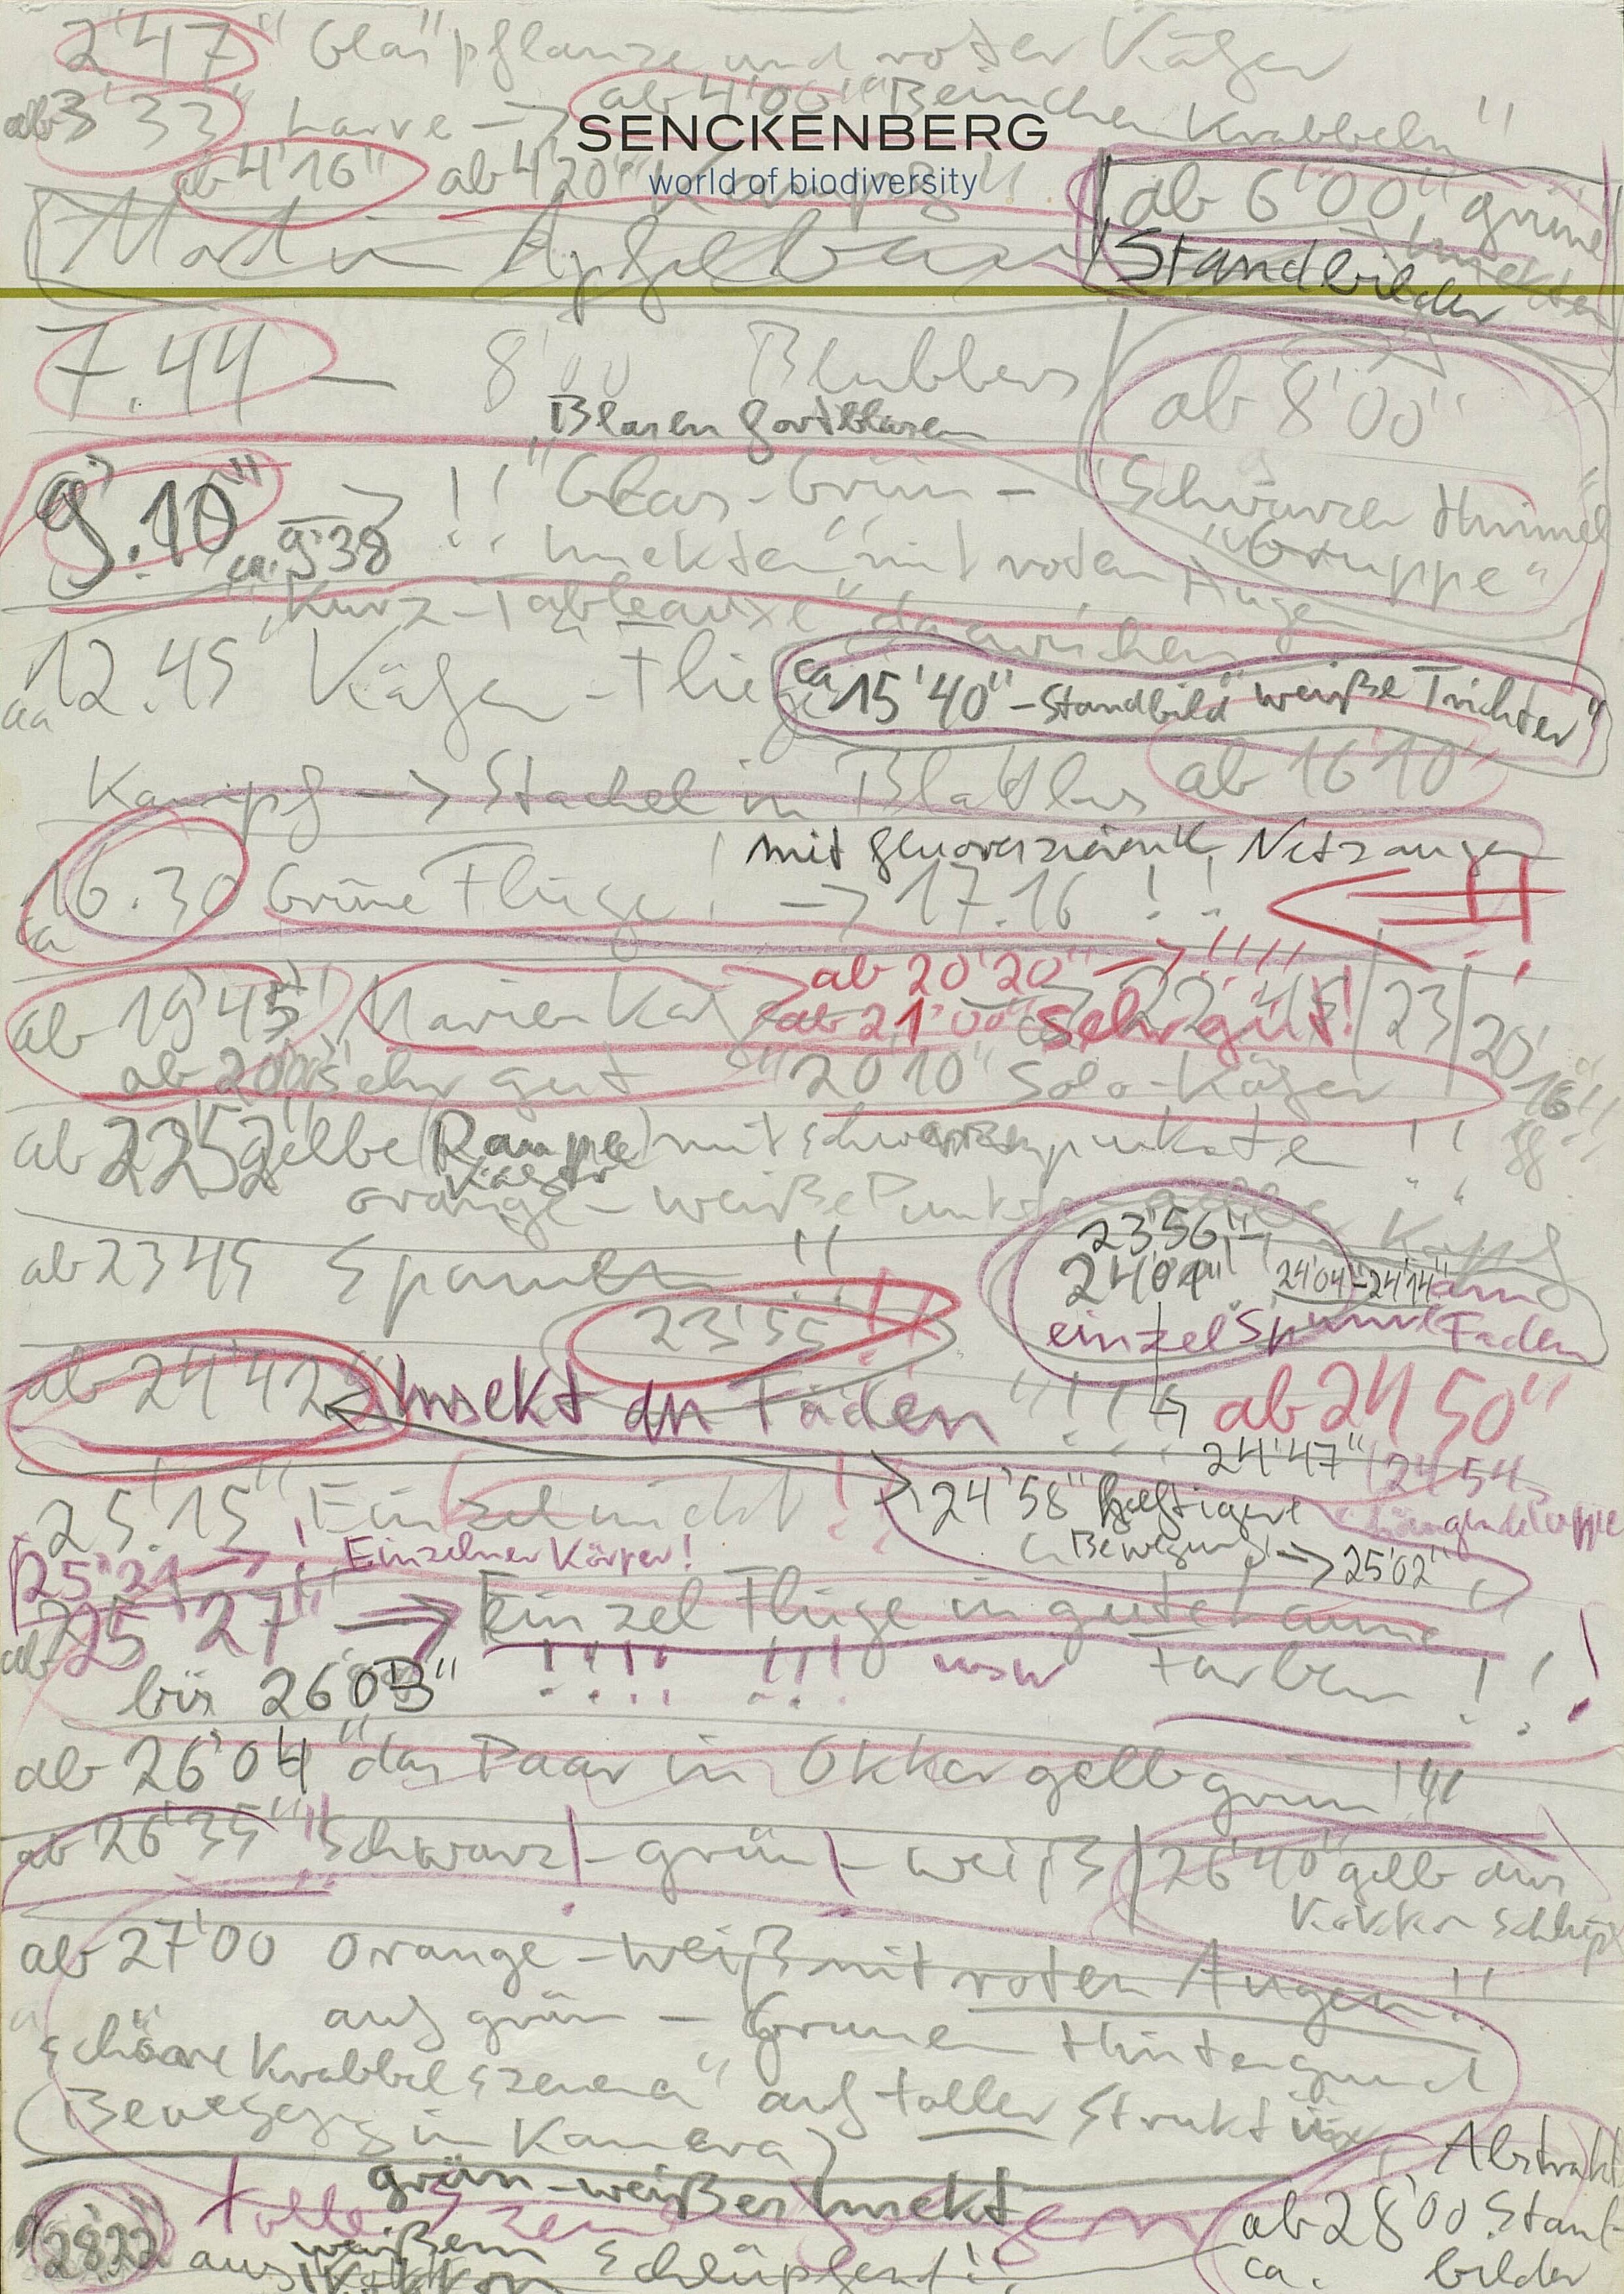 2'47" "Glas"pflanze und roter Käfer
ab 3'33" Larve → ab 4'00" "Beinchen Krabbeln"
SENCKENBERG
world of biodiversity
ab 4'16" ab 4'20" Kampf!!
ab 6'00" grüne
Insekten
Standbilder
Mord im Apfelbaum
7.44 — 8'00 Blubbers
"Blasen fortblasen
ab 8'00"
"Schwarzer Himmel"
"Gruppe"
9'.10" → !! Glas-Grün -
ca. 9'38 Insekten" mit roten Augen
"Kurz-Tableauxe" dazwischen
ca 12.45 Käfer - Fliege
ca 15'40" - Standbild "weiße Trichter"
Kampf → Stachel in Blattlaus ab 16'10"
mit Netzaugen
ca 16.30 Grüne Fliege! → 17.16 !!
ab 20'20" → !!!!
ab 19'45" Marienkäfer
ab 21'00" sehr gut! 23
ab 20'00" sehr gut "20'10" Solo-Käfer
20'16"!!
ab 22'52" gelbe (Raupe) mit schwarzen Punkte !!
Käfer
orange - weiße Punkte gelbe Kopf
ab 23 45 Spannen !!
23'55" !!
23'56"-
24'04" 24'04"-24'14" am
einzel Spinn Faden
ab 24'42" Insekt an Fäden "!!! ab 24 50"
24'47" 24'54
24'58" heftigere
Bewegung → 25'02"
hängende Puppe
25'.15" Einzel nickt!
25'21 → ! Einzelner Körper!
ab 25'27" → Einzel Fliege in gute
bis 26'03" !!!! !!! usw Farben !!!
ab 26'04" das Paar in Okkergelbgrün !!!
ab 26'35" Schwarz - grün - weiß 26'40" gelb aus
Kokkon schlüpf
ab 27'00 orange - weiß mit roten Augen!!
auf grün - Grünen Hintergrund
schöne Krabbelszenen" auf toller Struktur
(Bewegung in Kamera)
grün-weißer Insekt
tolle Szenen
28'22 aus weißem Kokkon schlüpfend!!
Abstrakt
ab 28'00 Stand-
ca. bilder